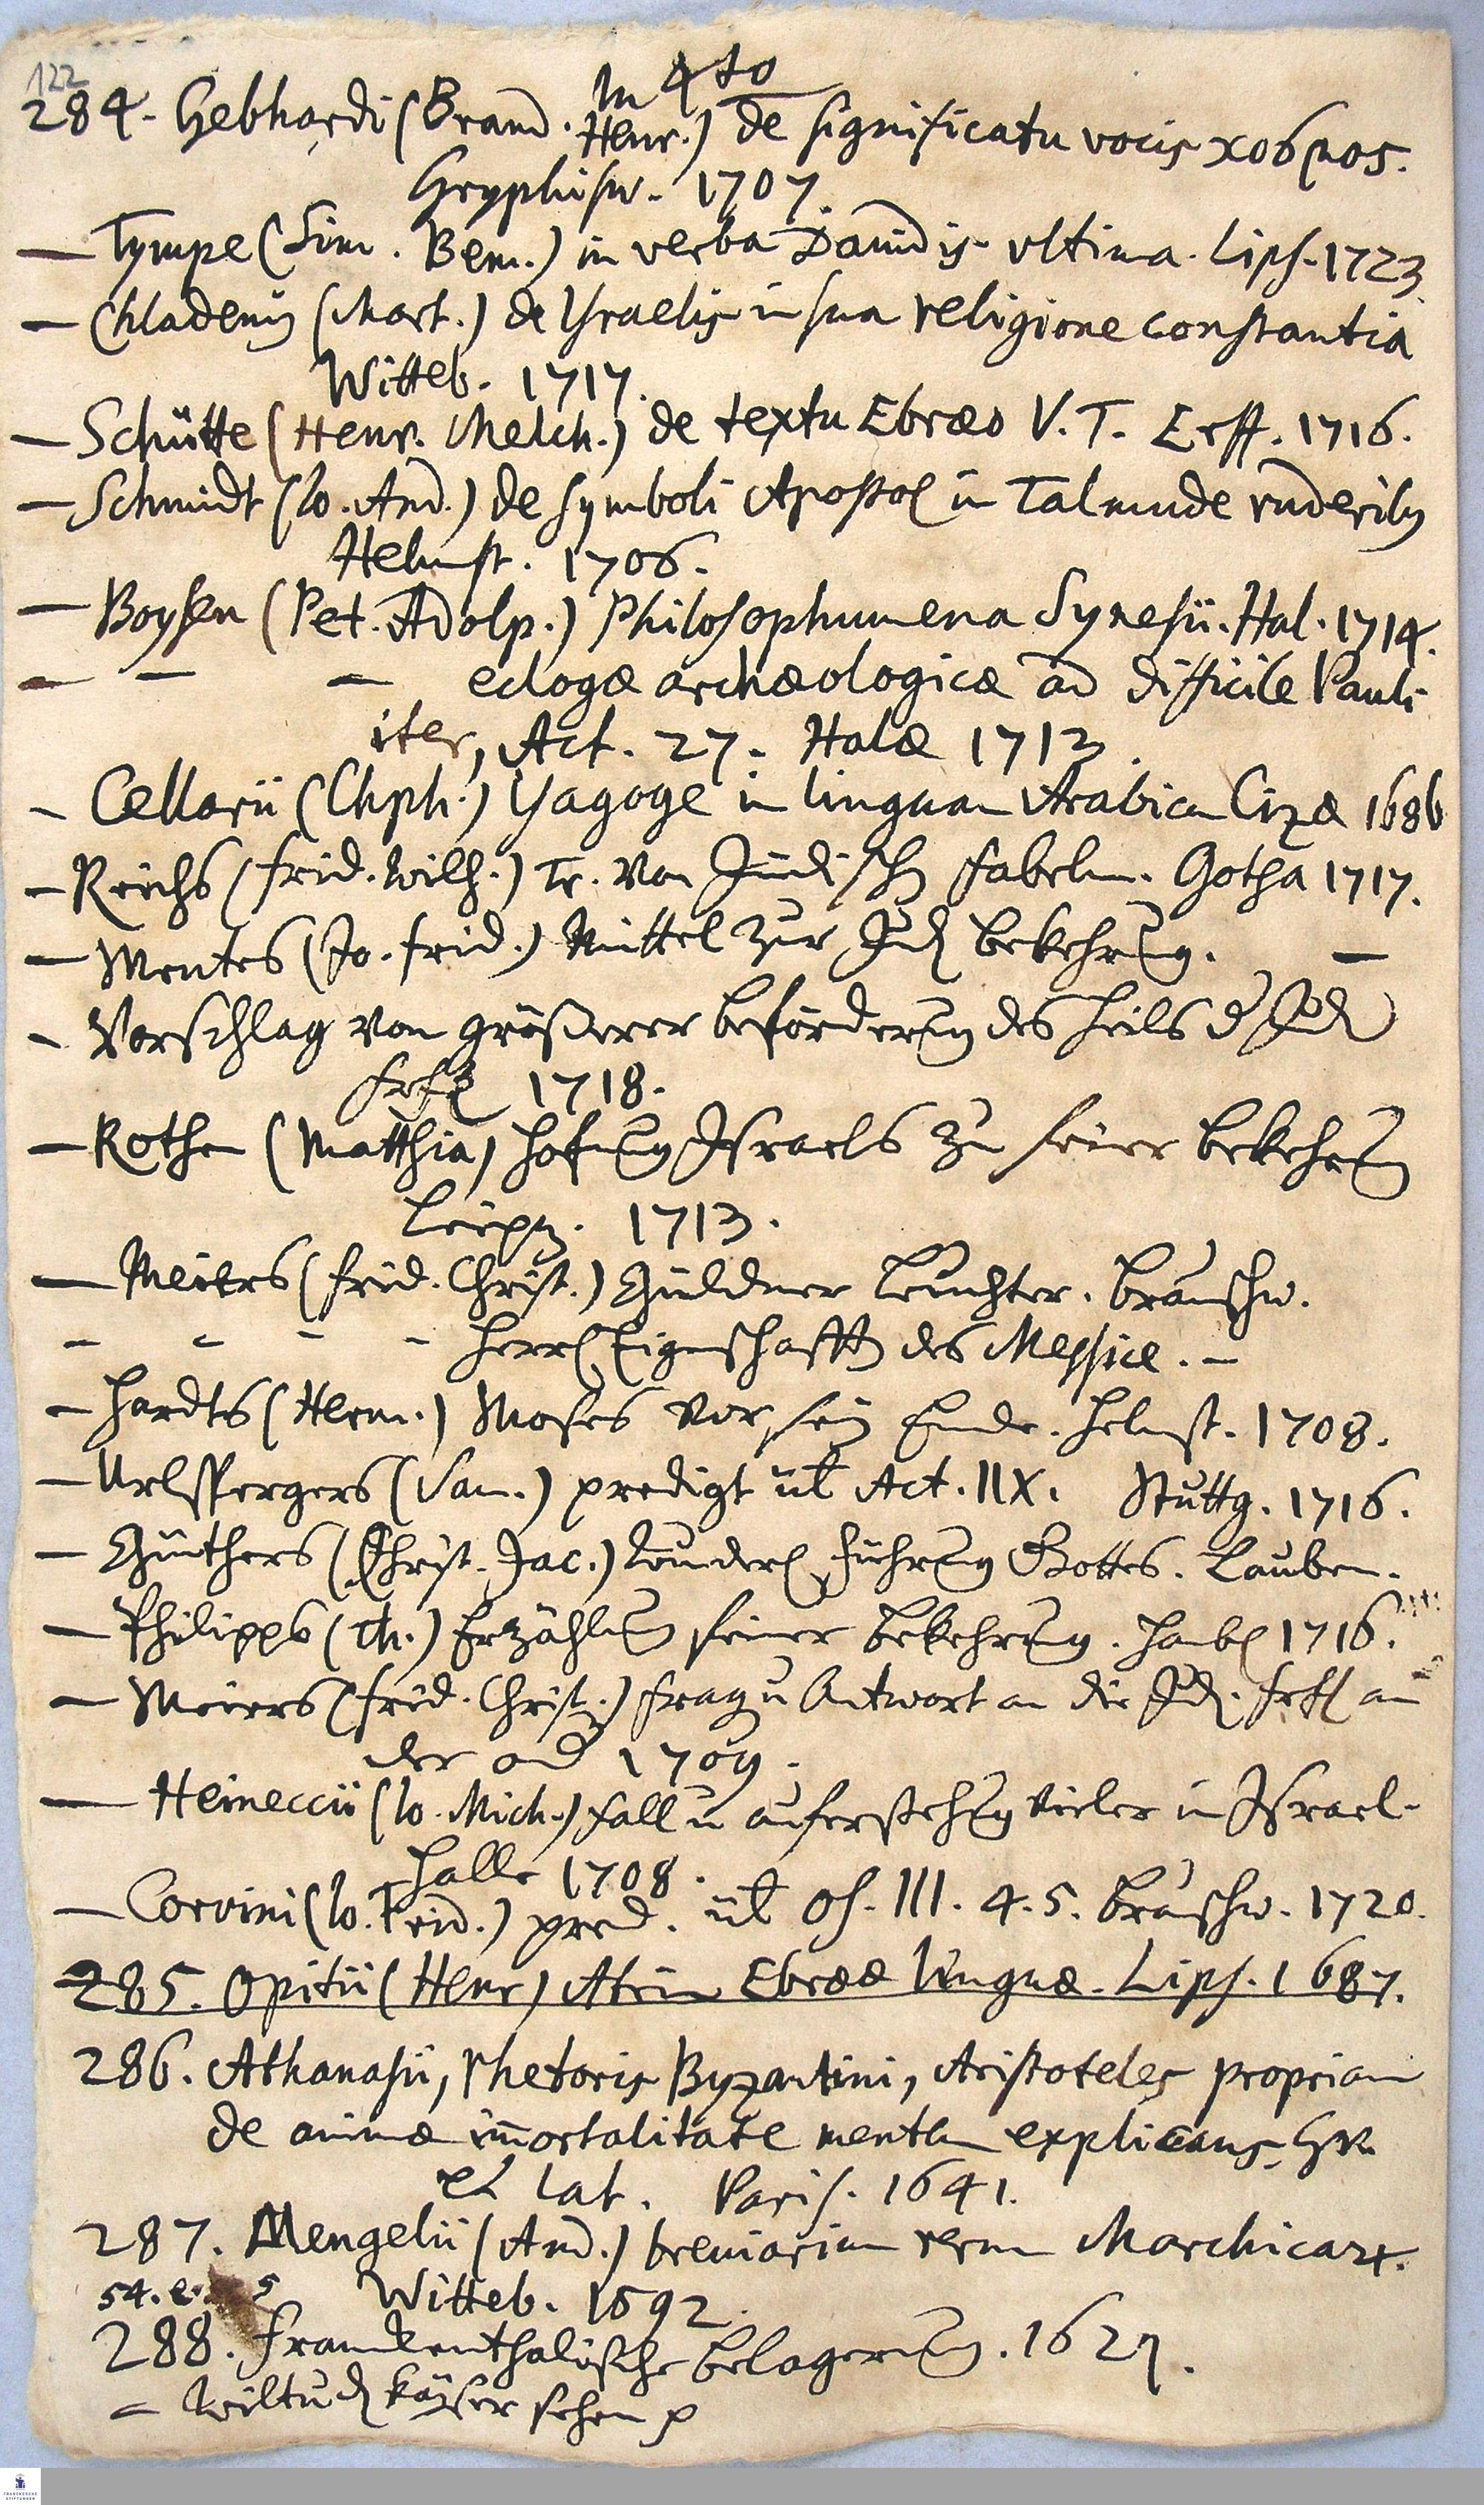 122
In 4to
284. Gebhardi (Brand. Henr.) de significatu vocis κοσμος.
Gryphisw. 1707.
— Tympe (Sim. Benj.) in verba Davidis ultima. Lips. 1723.
— Chladenii (Mart.) de Israelis in sua religione constantia
Witteb. 1717.
— Schütte (Henr. Melch.) de textu Ebræo V. T. Erff. 1716.
— Schmidt (Io. And.) de symboli Apostol in Talmude ruderib9
Helmst. 1706.
— Boysen (Pet. Adolp.) Philosophumena Synesii. Hal. 1714.
— — — eclogæ archæologicæ ad difficile Pauli
iter, Act. 27. Halæ 1713.
- Cellarii (Chph.) Isagoge in linguam Arabicam Cizæ 1686
— Reichs (Frid. Wilh.) Tr. von Jüdisch Fabeln. Gotha 1717.
— Mentes (Jo. Frid.) Mittel zur Jud Bekehrung. —
- Vorschlag von größerer Beförderung des Heils d Jud
Frkf 1718.
— Rothen (Matthia) Hofnung Israels zu seiner Bekehrung
Leipz. 1713.
— Meiers (Frid. Christ.) Güldner Leuchter. Braunschw.
- - - - Herrl Eigenschafft des Messiæ. —
- Hardts (Herm.) Moses vor sein Ende. Helmst. 1708.
— Urlspergers (Sam.) predigt üb Act. IIX. Stuttg. 1716.
— Günthers (Christ. Jac.) Führung Gottes. Lauben.
— Philipps (Th.) Erzählung seiner Bekehrung. Hamb 1716.
— Meiers (Frid. Christ.) Frag u Antwort an die Jud. Frkf an
der od 1709.
— Heineccii (Io. Mich.) Fall u auferstehung vieler in Israel.
Halle 1708.
— Corvini (Io. Frid.) pred. üb Os. III. 4. 5. Braunschw. 1720.
285. Opitii (Henr) Atrium Ebrææ linguæ. Lips. 1687.
286. Athanasii, rhetoris Byzantini, Aristoteles propriam
de animæ immortalitate mentem explicans, Gr.
et lat. Paris. 1641.
287. Mengelii (And.) breviarium rerum Marchicar.
54. e. 5 Witteb. 1592.
288. Franckenthalische Belagerung. 1621.
- Wiltu d Käyser sehen p
FRANCKESCHE STIFTUNGEN